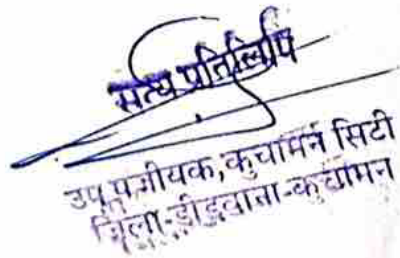 सत्य प्रतिलिपि
उप पंजीयक, कुचामन सिटी
जिला-डीडवाना-कुचामन